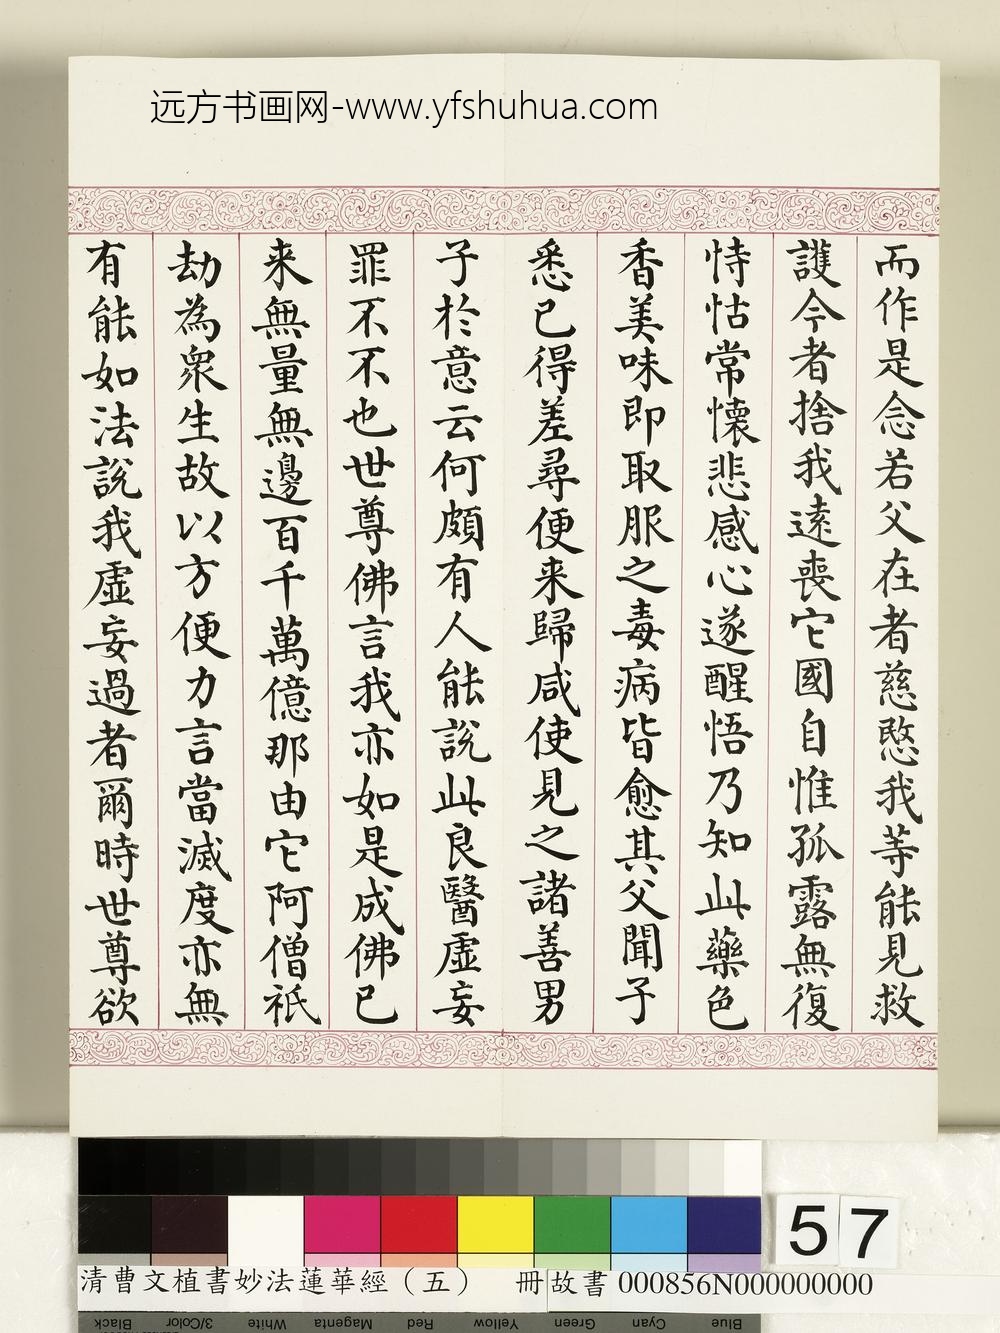 远方书画网-www.yfshuhua.com
而作是念若父在者慈愍我等能見救
護今者捨我遠喪它國自惟孤露無復
恃怙常懷悲感心遂醒悟乃知此藥色
香美味即取服之毒病皆愈其父聞子
悉已得差尋便来歸咸使見之諸善男
子於意云何頗有人能說此良醫虛妄
罪不不也世尊佛言我亦如是成佛已
来無量無邊百千萬億那由它阿僧祇
劫為衆生故以方便力言當滅度亦無
有能如法說我虛妄過者爾時世尊欲
57
清曹文植書妙法蓮華經（五） 冊故書000856N000000000
Black 3/Color White Magenta Red Yellow Green Cyan Blue